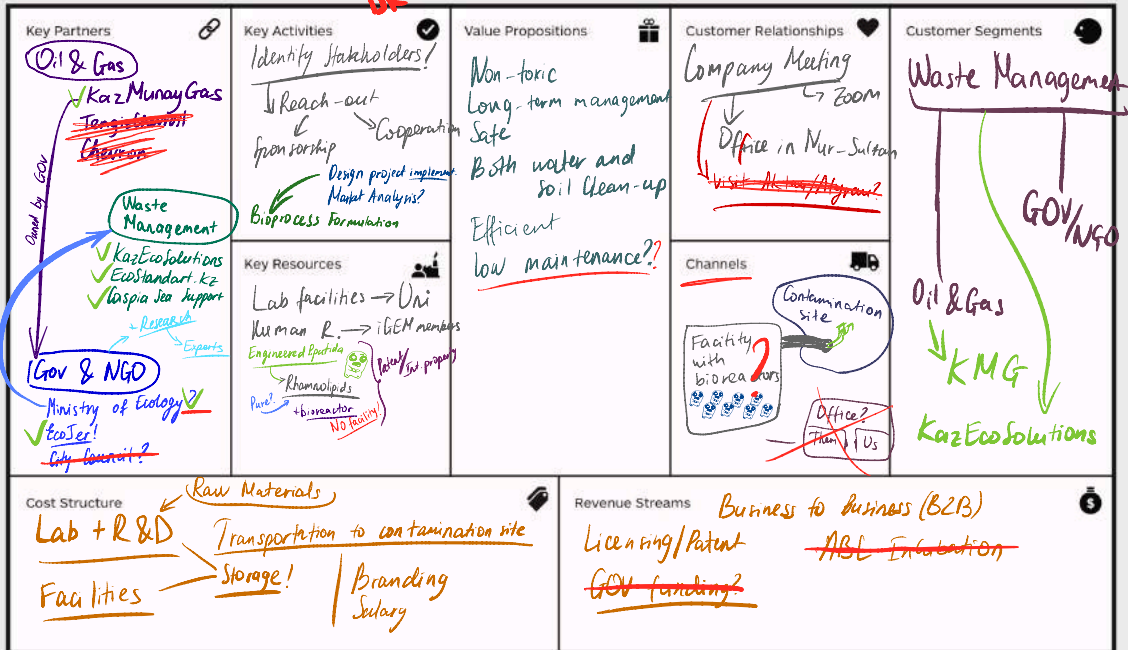 Key Partners
Oil & Gas
KazMunayGas
Tengizchevroil
Chevron
Owned by GOV
Waste
Management
KazEcoSolutions
EcoStandart.kz
Caspia Sea Support
+ Research
Experts
Gov & NGO
Ministry of Ecology?
EcoJer!
City Council?
Key Activities
Identify Stakeholders!
Reach-out
Cooperation
Sponsorship
Design project implement.
Market Analysis?
Bioprocess Formulation
Key Resources
Lab facilities → Uni
Human R. → iGEM members
Engineered Pputida
Rhamnolipids
Pure?
+bioreactor
NO facility!
Patent/
Int. property
Value Propositions
Non-toxic
Long-term management
Safe
Both water and
soil clean-up
Efficient
Low maintenance??
Customer Relationships
Company Meeting
Zoom
Office in Nur-Sultan
Visit Aktau/Atyrau?
Channels
Contamination
site
Facility
with
bioreactors
?
Office?
Them
Us
Customer Segments
Waste Management
GOV/NGO
Oil & Gas
KMG
KazEcoSolutions
Cost Structure
Raw Materials
Lab + R&D
Transportation to contamination site
Storage!
Facilities
Branding
Salary
Revenue Streams
Business to Business (B2B)
Licensing/Patent
GOV funding?